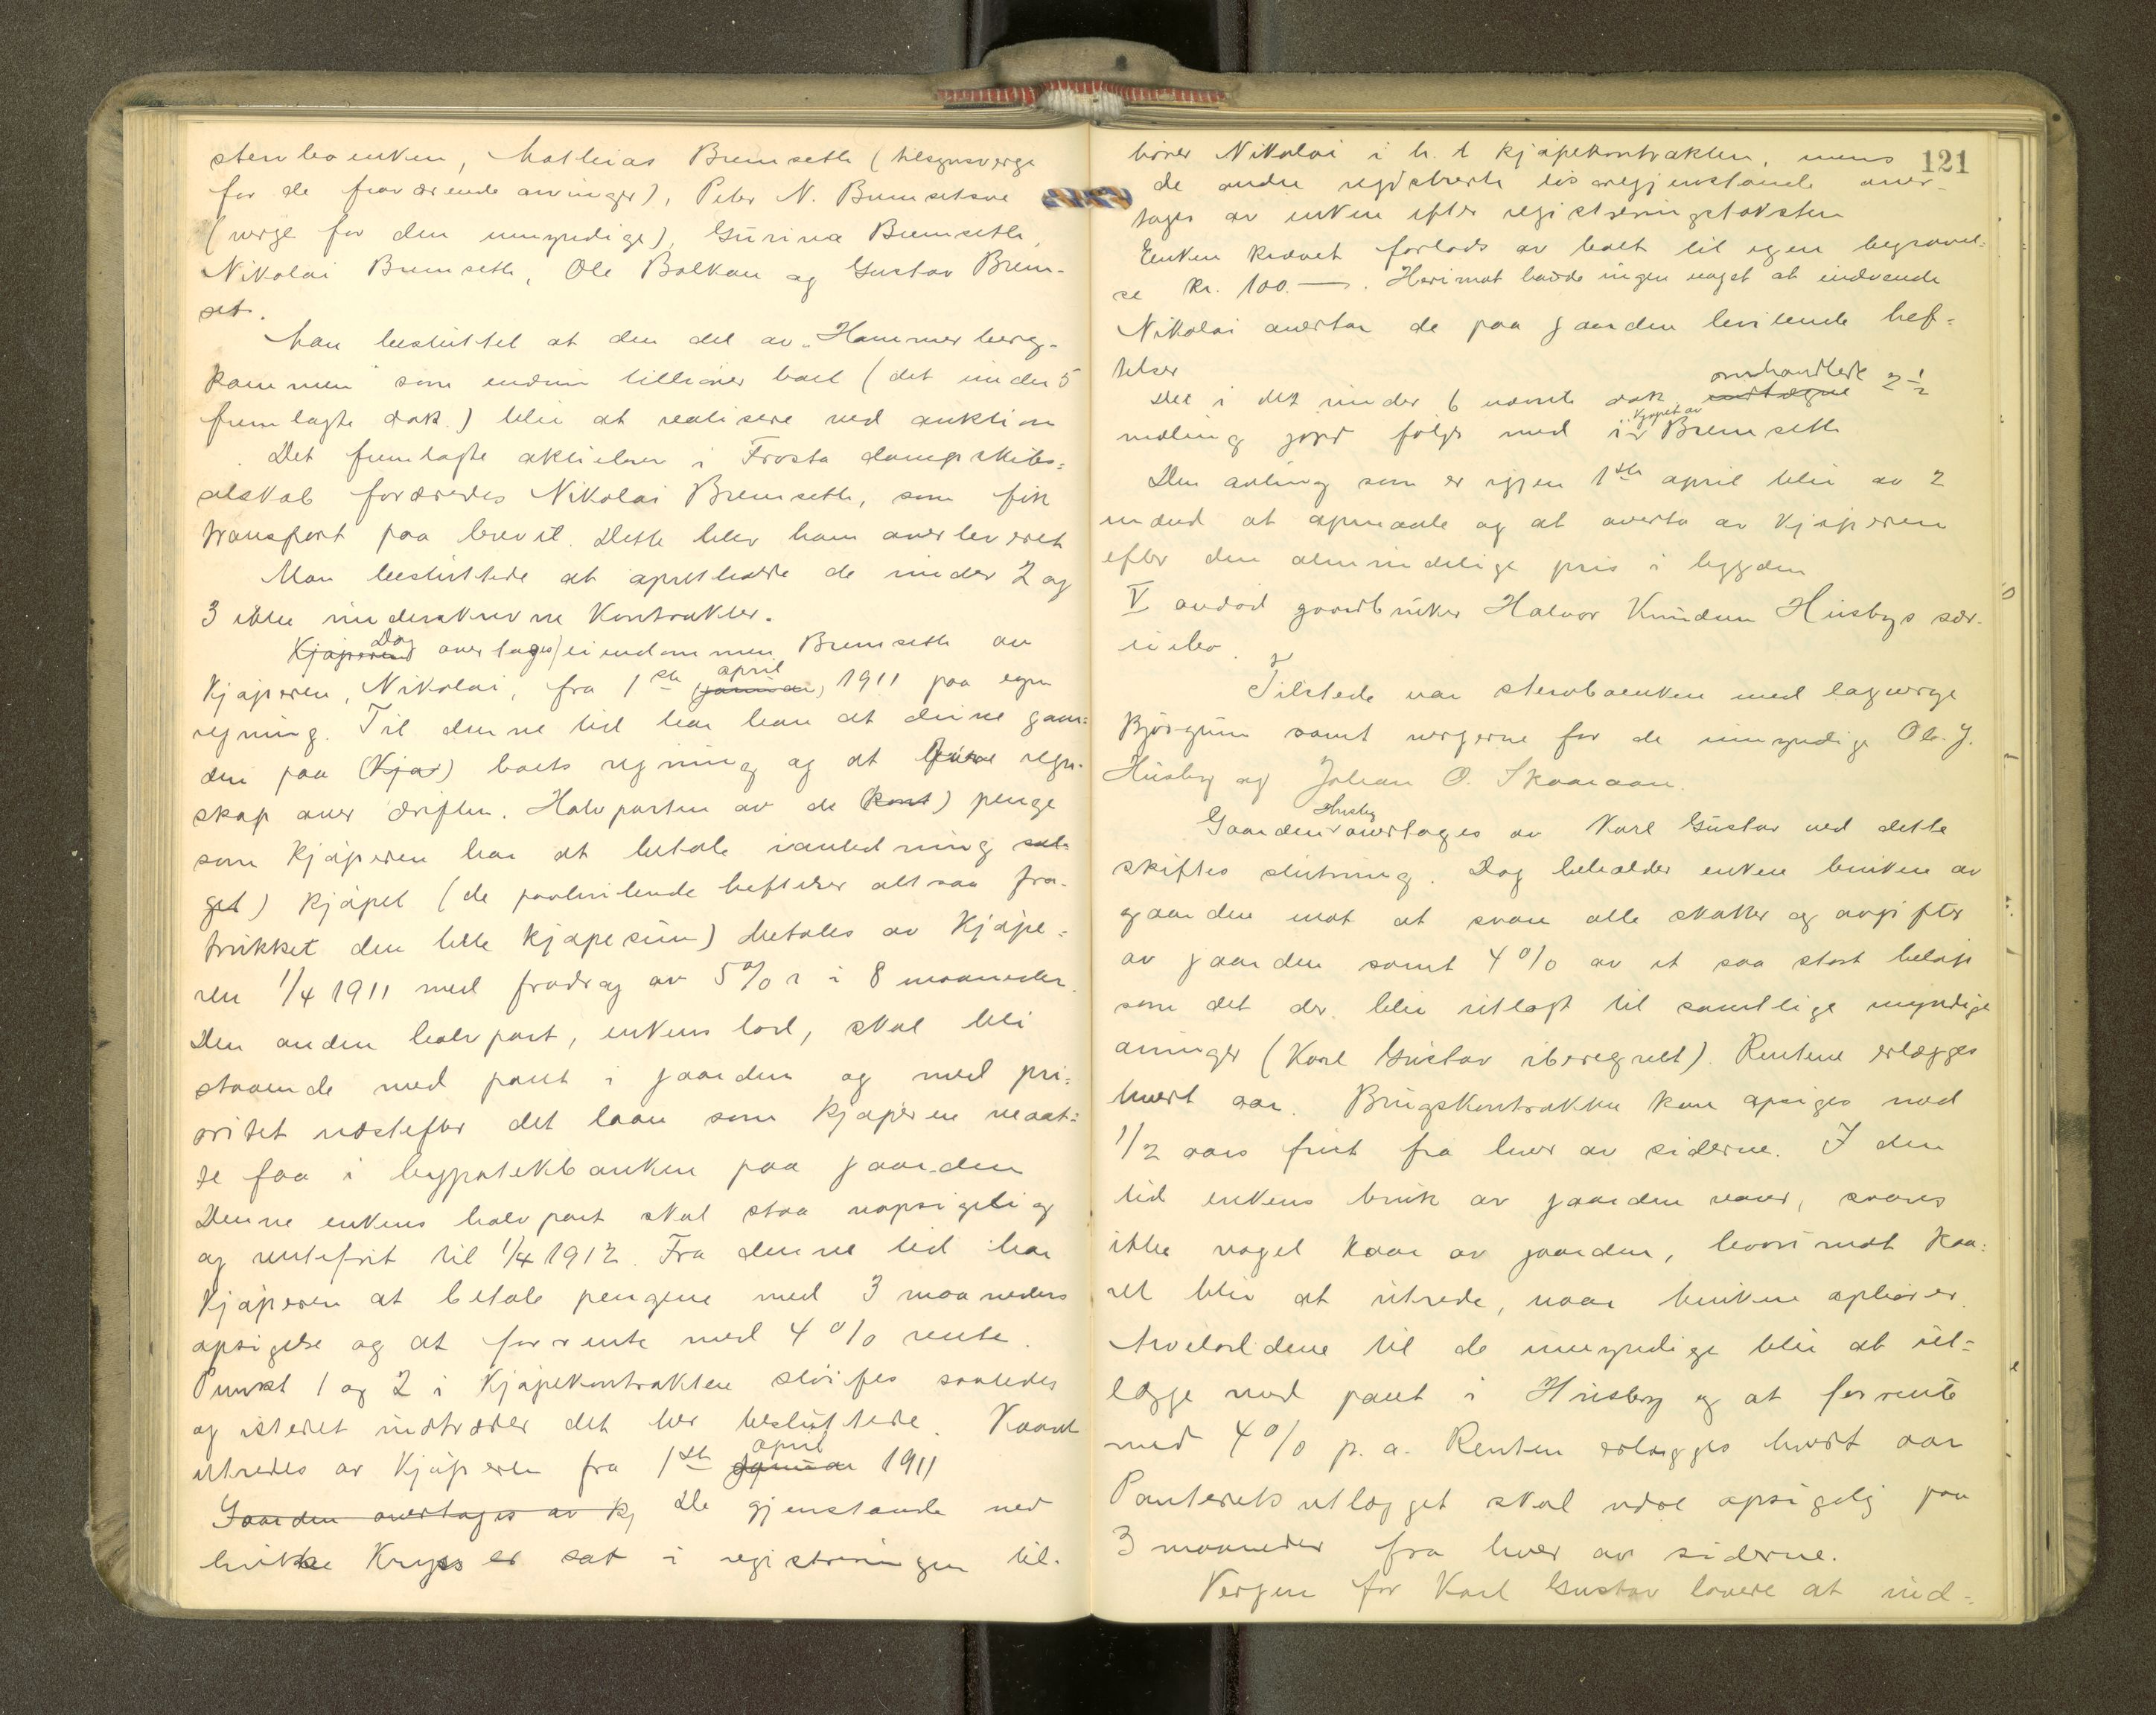 sterboenken, Mathias Bremseth (tilsynsverge
for de fraværende arvinger), Peter N. Bremsetsve
(verge for den umyndige), Gurina Bremseth,
Nikolai Bremseth, Ole Balkan og Gustav Brem-
set.
Man besluttet at den del av "Hammerberg-
kammen" som endnu tilhører boet (det under 5
fremlagte dok.) blir at realisere ved auktion
Det fremlagte aktiebrev i Frosta dampskibs-
selskab foræredes Nikolai Bremseth, som fik
transport paa brevet. Dette blev ham overleveret
Man besluttede at opretholde de under 2 og
3 ikke underskrevne kontrakter.
Kjøperen Dog overtages eiendommen Bremseth av
kjøperen, Nikolai, fra 1ste januar april 1911 paa egen
regning. Til denne tid har han at drive gaar-
den paa (Kjø) boets regning og at føre regn-
skap over driften. Halvparten av de kont) penge
som kjøperen har at betale i anledning sal-
get) kjøpet (de paahvilende heftelser altsaa fra-
trukket den hele kjøpesum) betales av kjøpe-
ren 1/4 1911 med fradrag av 5% r i 8 maaneder.
Den anden halvpart, enkens lod, skal bli
staaende med pant i gaarden og med pri-
oritet næstefter det laan som kjøperen maat-
te faa i hypotekbanken paa gaarden
Denne enkens halvpart skal staa uopsigelig
og rentefrit til 1/4 1912. Fra denne tid har
kjøperen at betale pengene med 3 maaneders
opsigelse og at forrente med 4% rente.
Punkt 1 og 2 i kjøpekontrakten sløifes saaledes
og istedet indtræder det her besluttede. Kaaret
utredes av kjøperen fra 1ste januar april 1911
Gaarden overtages av kj De gjenstande ved
hvilke Kryss er sat i registreringen til-
121
hører Nikolai i h. t kjøpekontrakten, mens
de andre registrerte løsøregjenstande over-
tages av enken efter registreringstaksten
Enken krævet forlods av boet til egen begravel-
se kr. 100.—. Herimot hadde ingen noget at indvende
Nikolai overtar de paa gaarden hvilende hef-
telser
Det i det under 6 nævnte dok. omhandlede 2 1/2
maling jord følge med i kjøpet av Bremseth
Den avling som er igjen 1ste april blir av 2
mænd at opmaale og at overta av kjøperen
efter den almindelige pris i bygden
V avdød gaardbruker Halvor Knudsen Husbys sær-
eiebo.
Tilstede var sterboenken med lagverge
Bjørgum samt vergerne for de umyndige Ole J.
Husby og Johan O. Skaanan.
Gaarden Husby overtages av Karl Gustav ved dette
skiftes slutning. Dog beholder enken bruken av
gaarden mot at svare alle skatter og avgifter
av gaarden samt 4% av et saa stort beløp
som det der blir utlagt til samtlige myndige
arvinger (Karl Gustav iberegnet). Rentene erlægges
hvert aar. Brugskontrakten kan opsiges med
1/2 aars frist fra hver av siderne. I den
tid enkens bruk av gaarden varer, svares
ikke noget kaar av gaarden, hvorimot kaa-
ret blir at utrede, naar bruken ophører.
Arveloddene til de umyndige blir at ut-
lægge med pant i Husby og at forrente
med 4% p. a. Renten erlægges hvert aar
Panteretsutlægget skal være opsigelig paa
3 maaneder fra hver av siderne.
Vergen for Karl Gustav lovere at ind-